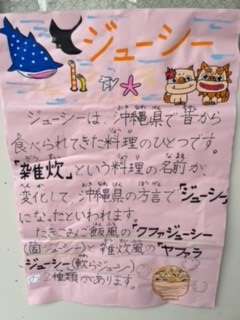 ジューシー
ジューシーは、沖縄県で昔から
食べられてきた料理のひとつです。
「雑炊」という料理の名前が、
変化して、沖縄県の方言で「ジューシー」
になったといわれます。
たきこみご飯風の「クファジューシー
(固ジューシー)と雑炊風の「ヤファラ
ジューシー(軟らジューシー)の
2種類があります。